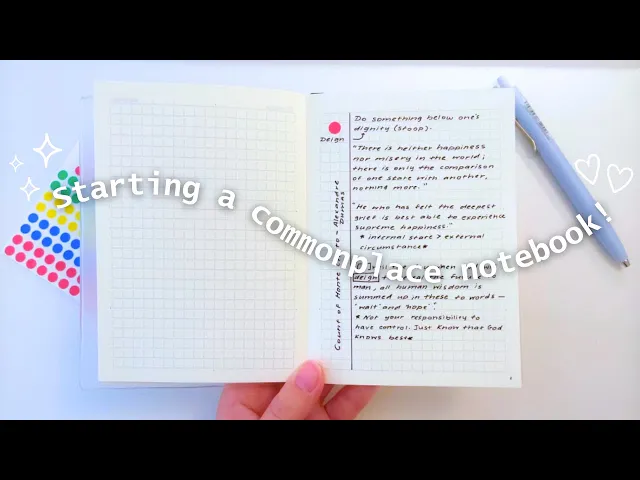 Starting a commonplace notebook!
Deign
Do something below one's
dignity (stoop).
"There is neither happiness
nor misery in the world;
there is only the comparison
of one state with another,
nothing more."
"He who has felt the deepest
grief is best able to experience
supreme happiness."
* internal state > external
circumstance*
deign
man, all human wisdom is
summed up in these to words —
'wait' and 'hope'."
* Not your responsibility to
have control. Just know that God
knows best*
Count of Monte - Alexandre
Dumas